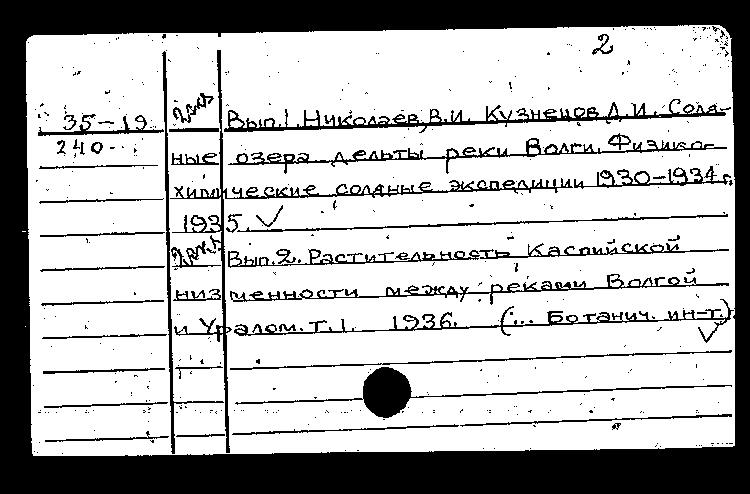 2
35-19 2экз Вып.1. Николаев, В.И. Кузнецов Д.И. Соля-
240 ные озера дельты реки Волги. Физико-
химические соляные экспедиции 1930-1934 г.
1935. ✓
2экз. Вып.2. Растительность Каспийской
низменности между реками Волгой
и Уралом. т. 1. 1936. (... Ботанич. ин-т.)
✓